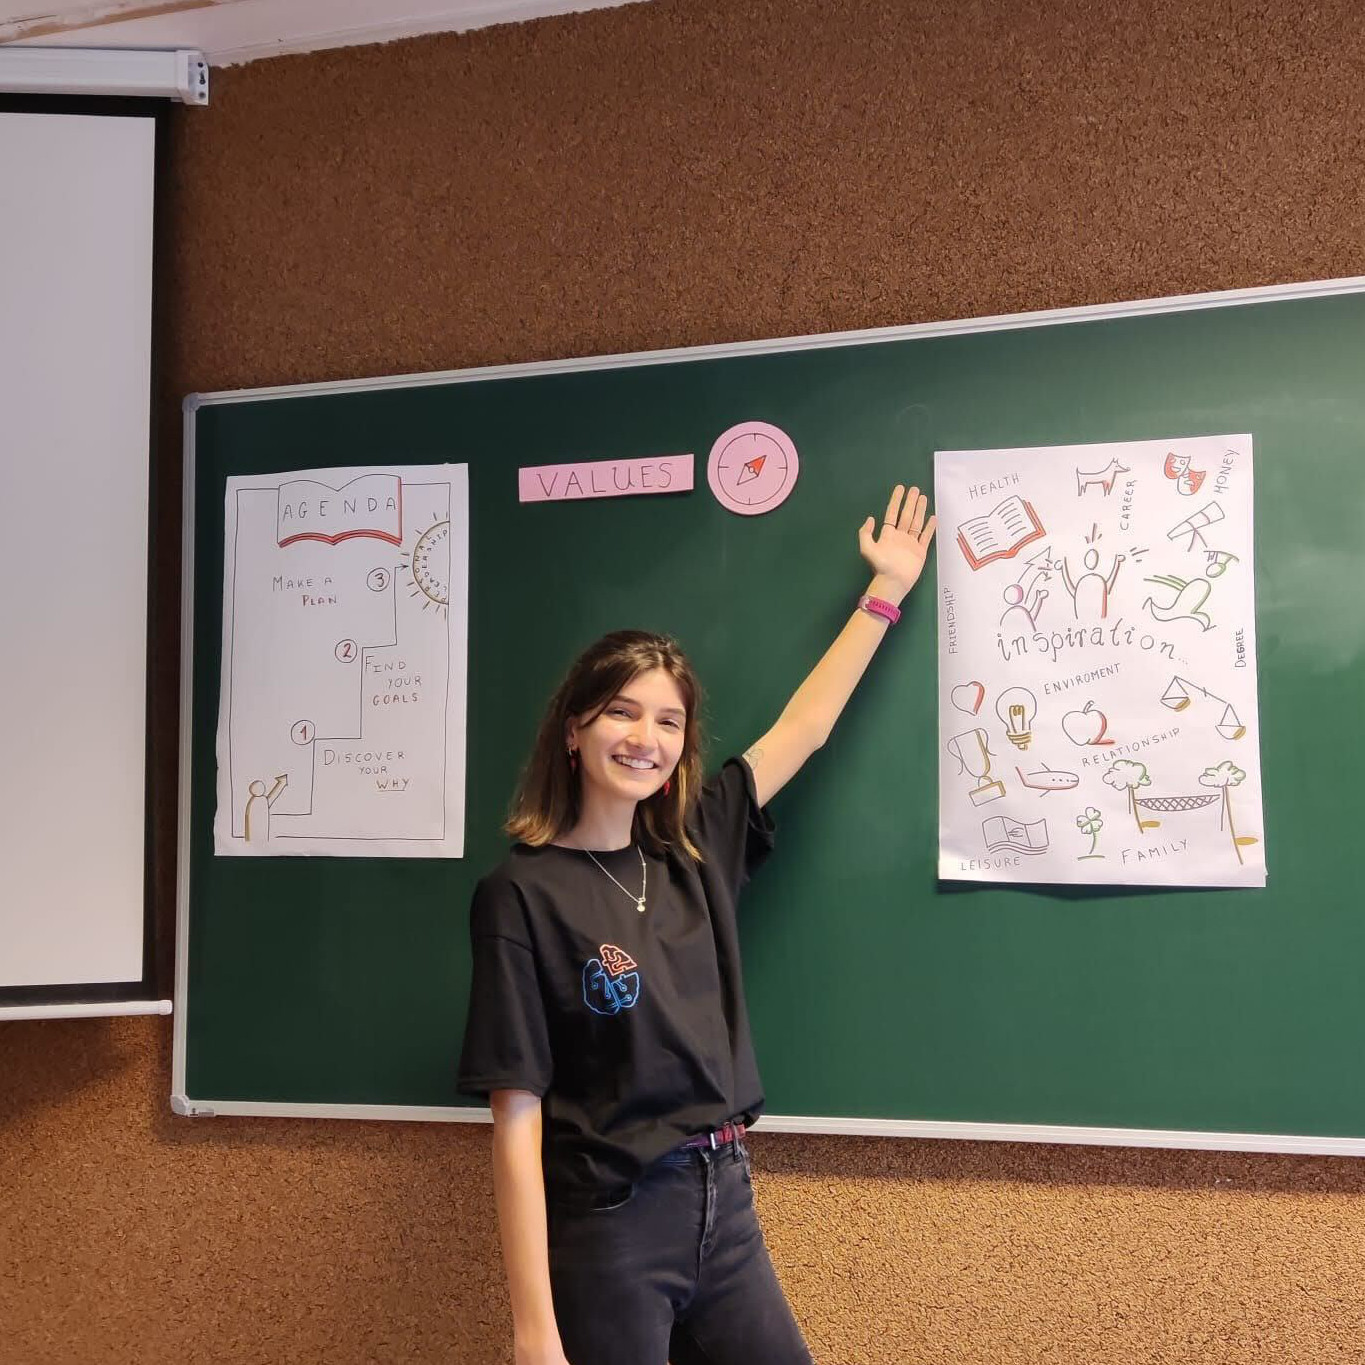 AGENDA
PERSONAL
LEADERSHIP
3
MAKE A
PLAN
2
FIND
YOUR
GOALS
1
DISCOVER
YOUR
WHY
VALUES
HEALTH
CAREER
MONEY
FRIENDSHIP
inspiration...
DEGREE
ENVIROMENT
RELATIONSHIP
€
LEISURE
FAMILY